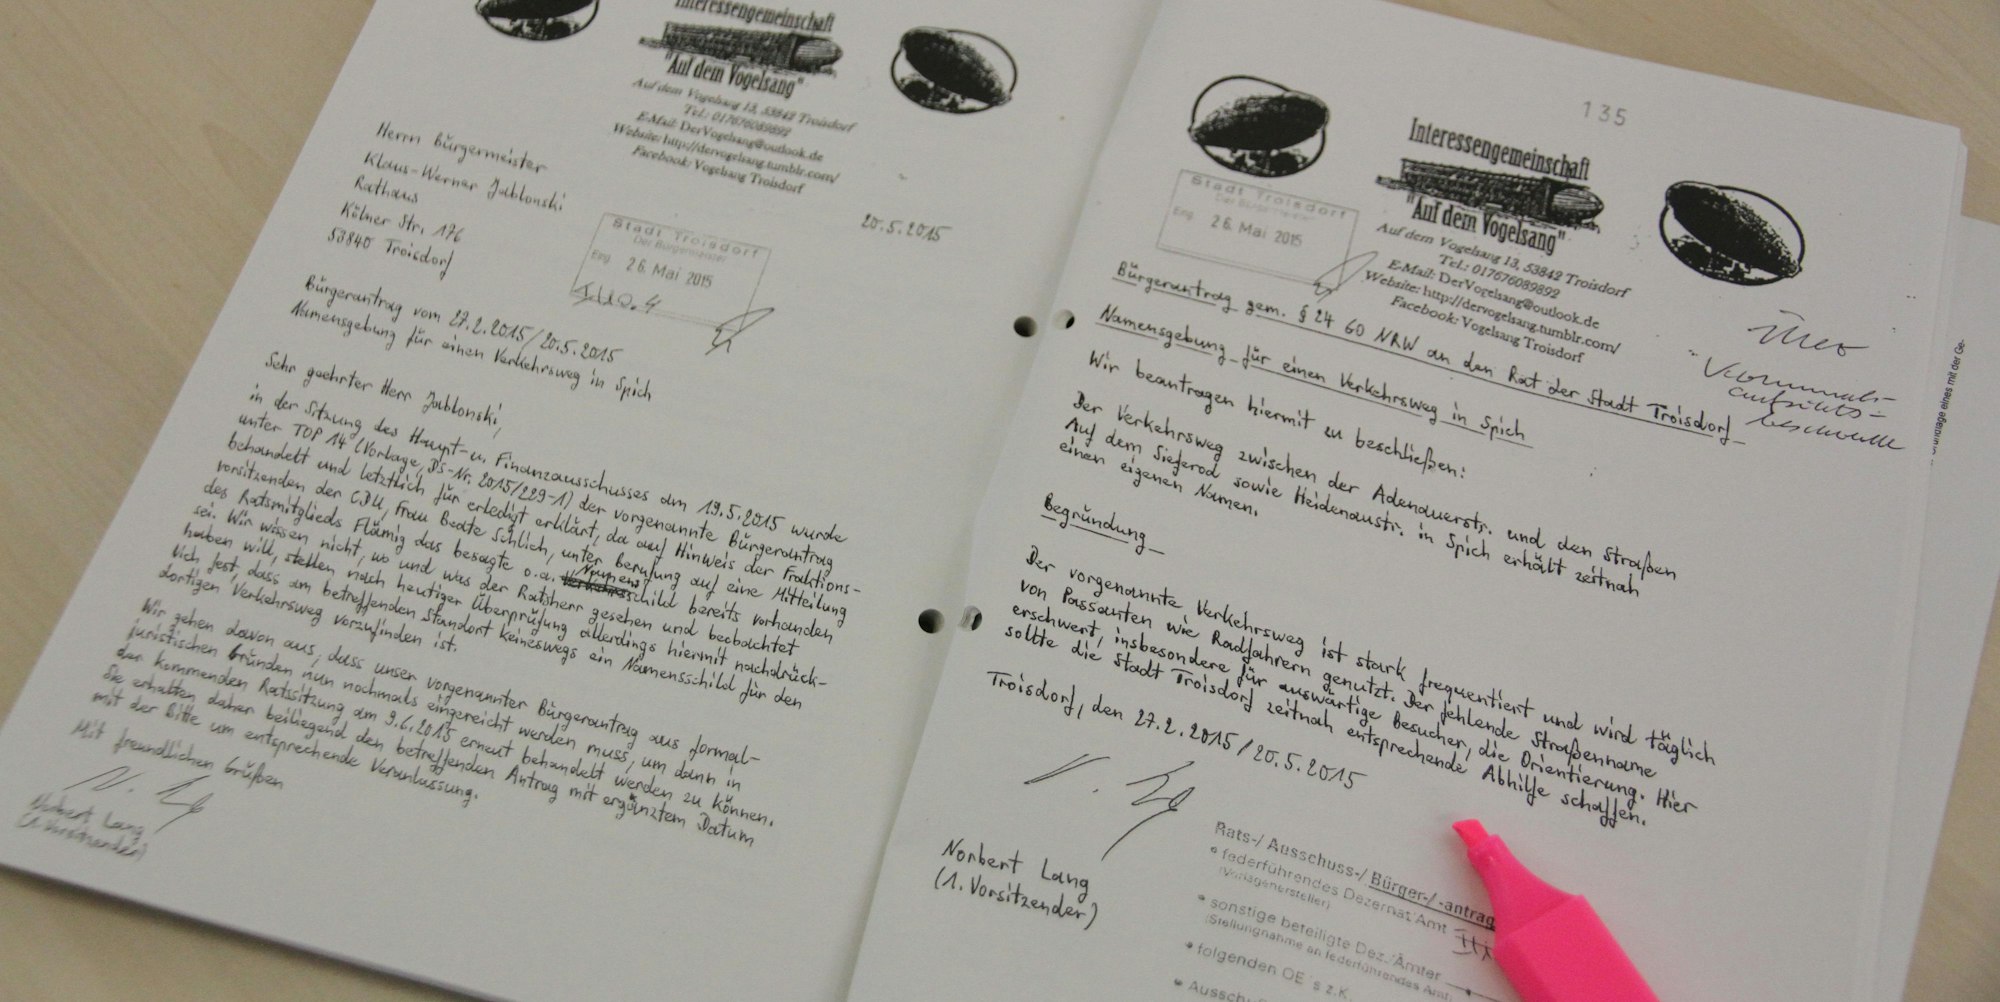 Interessengemeinschaft
"Auf dem Vogelsang"
Auf dem Vogelsang 13, 53842 Troisdorf
Tel.: 017676089892
E-Mail: DerVogelsang@outlook.de
Website: http://dervogelsang.tumblr.com/
Facebook: Vogelsang Troisdorf
Herrn Bürgermeister
Klaus-Werner Jablonski
Rathaus
Kölner Str. 176
53840 Troisdorf
20.5.2015
Stadt Troisdorf
Der Bürgermeister
Eing. 26. Mai 2015
Bürgerantrag vom 27.2.2015/20.5.2015
Namensgebung für einen Verkehrsweg in Spich
Sehr geehrter Herr Jablonski,
in der Sitzung des Haupt- u. Finanzausschusses am 19.5.2015 wurde
unter TOP 14 (Vorlage, DS-Nr. 2015/229-1) der vorgenannte Bürgerantrag
behandelt und letztlich für erledigt erklärt, da auf Hinweis der Fraktions-
vorsitzenden der CDU, Frau Beate Schlich, unter berufung auf eine Mitteilung
des Ratsmitglieds Flämig das besagte o.a. Namensschild bereits vorhanden
sei. Wir wissen nicht, wo und was der Ratsherr gesehen und beobachtet
haben will, stellen nach heutiger Überprüfung allerdings hiermit nachdrück-
lich fest, dass am betreffenden Standort keineswegs ein Namensschild für den
dortigen Verkehrsweg vorzufinden ist.
Wir gehen davon aus, dass unser vorgenannter Bürgerantrag aus formal-
juristischen Gründen nun nochmals eingereicht werden muss, um dann in
der kommenden Ratssitzung am 9.6.2015 erneut behandelt werden zu können.
Sie erhalten daher beiliegend den betreffenden Antrag mit ergänztem Datum
mit der Bitte um entsprechende Veranlassung.
Mit freundlichen Grüßen
Norbert Lang
(1. Vorsitzender)
135
Interessengemeinschaft
"Auf dem Vogelsang"
Auf dem Vogelsang 13, 53842 Troisdorf
Tel.: 017676089892
E-Mail: DerVogelsang@outlook.de
Website: http://dervogelsang.tumblr.com/
Facebook: Vogelsang Troisdorf
Stadt Troisdorf
Der Bürgermeister
Eing. 26. Mai 2015
Bürgerantrag gem. § 24 GO NRW an den Rat der Stadt Troisdorf
Namensgebung für einen Verkehrsweg in Spich
Wir beantragen hiermit zu beschließen:
Der Verkehrsweg zwischen der Adenauerstr. und den Straßen
Auf dem Sieferod sowie Heidenaustr. in Spich erhält zeitnah
einen eigenen Namen.
Begründung
Der vorgenannte Verkehrsweg ist stark frequentiert und wird täglich
von Passanten wie Radfahrern genutzt. Der fehlende Straßenname
erschwert, insbesondere für auswärtige Besucher, die Orientierung. Hier
sollte die Stadt Troisdorf zeitnah entsprechende Abhilfe schaffen.
Troisdorf, den 27.2.2015/20.5.2015
Norbert Lang
(1. Vorsitzender)
Rats-/ Ausschuss-/ Bürger-/ -antrag
• federführendes Dezernat/Amt
(Vorlagenersteller)
• sonstige beteiligte Dez./Ämter
(Stellungnahme an federführendes Amt)
• folgenden OE´s z.K.